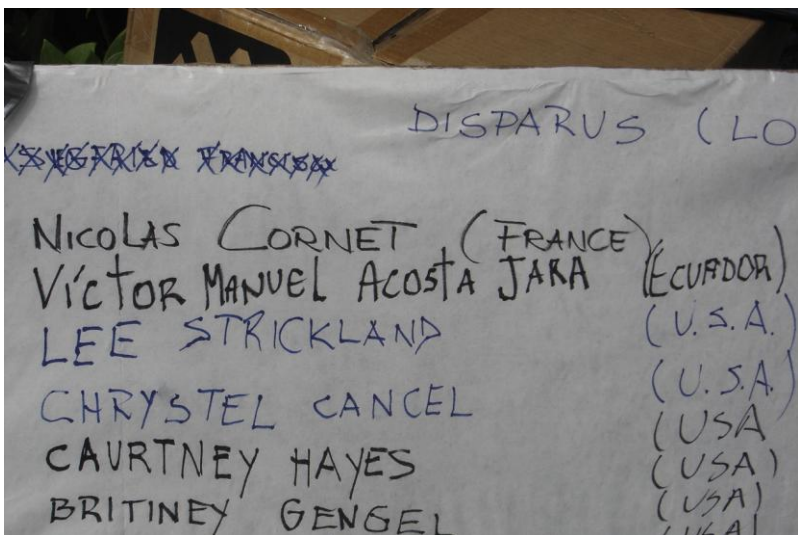 DISPARUS (LO
NICOLAS CORNET (FRANCE)
VÍCTOR MANUEL ACOSTA JARA (ECUADOR)
LEE STRICKLAND (U.S.A.)
CHRYSTEL CANCEL (U.S.A.)
(USA
CAURTNEY HAYES (USA)
BRITINEY GENGEL (USA)
(USA)